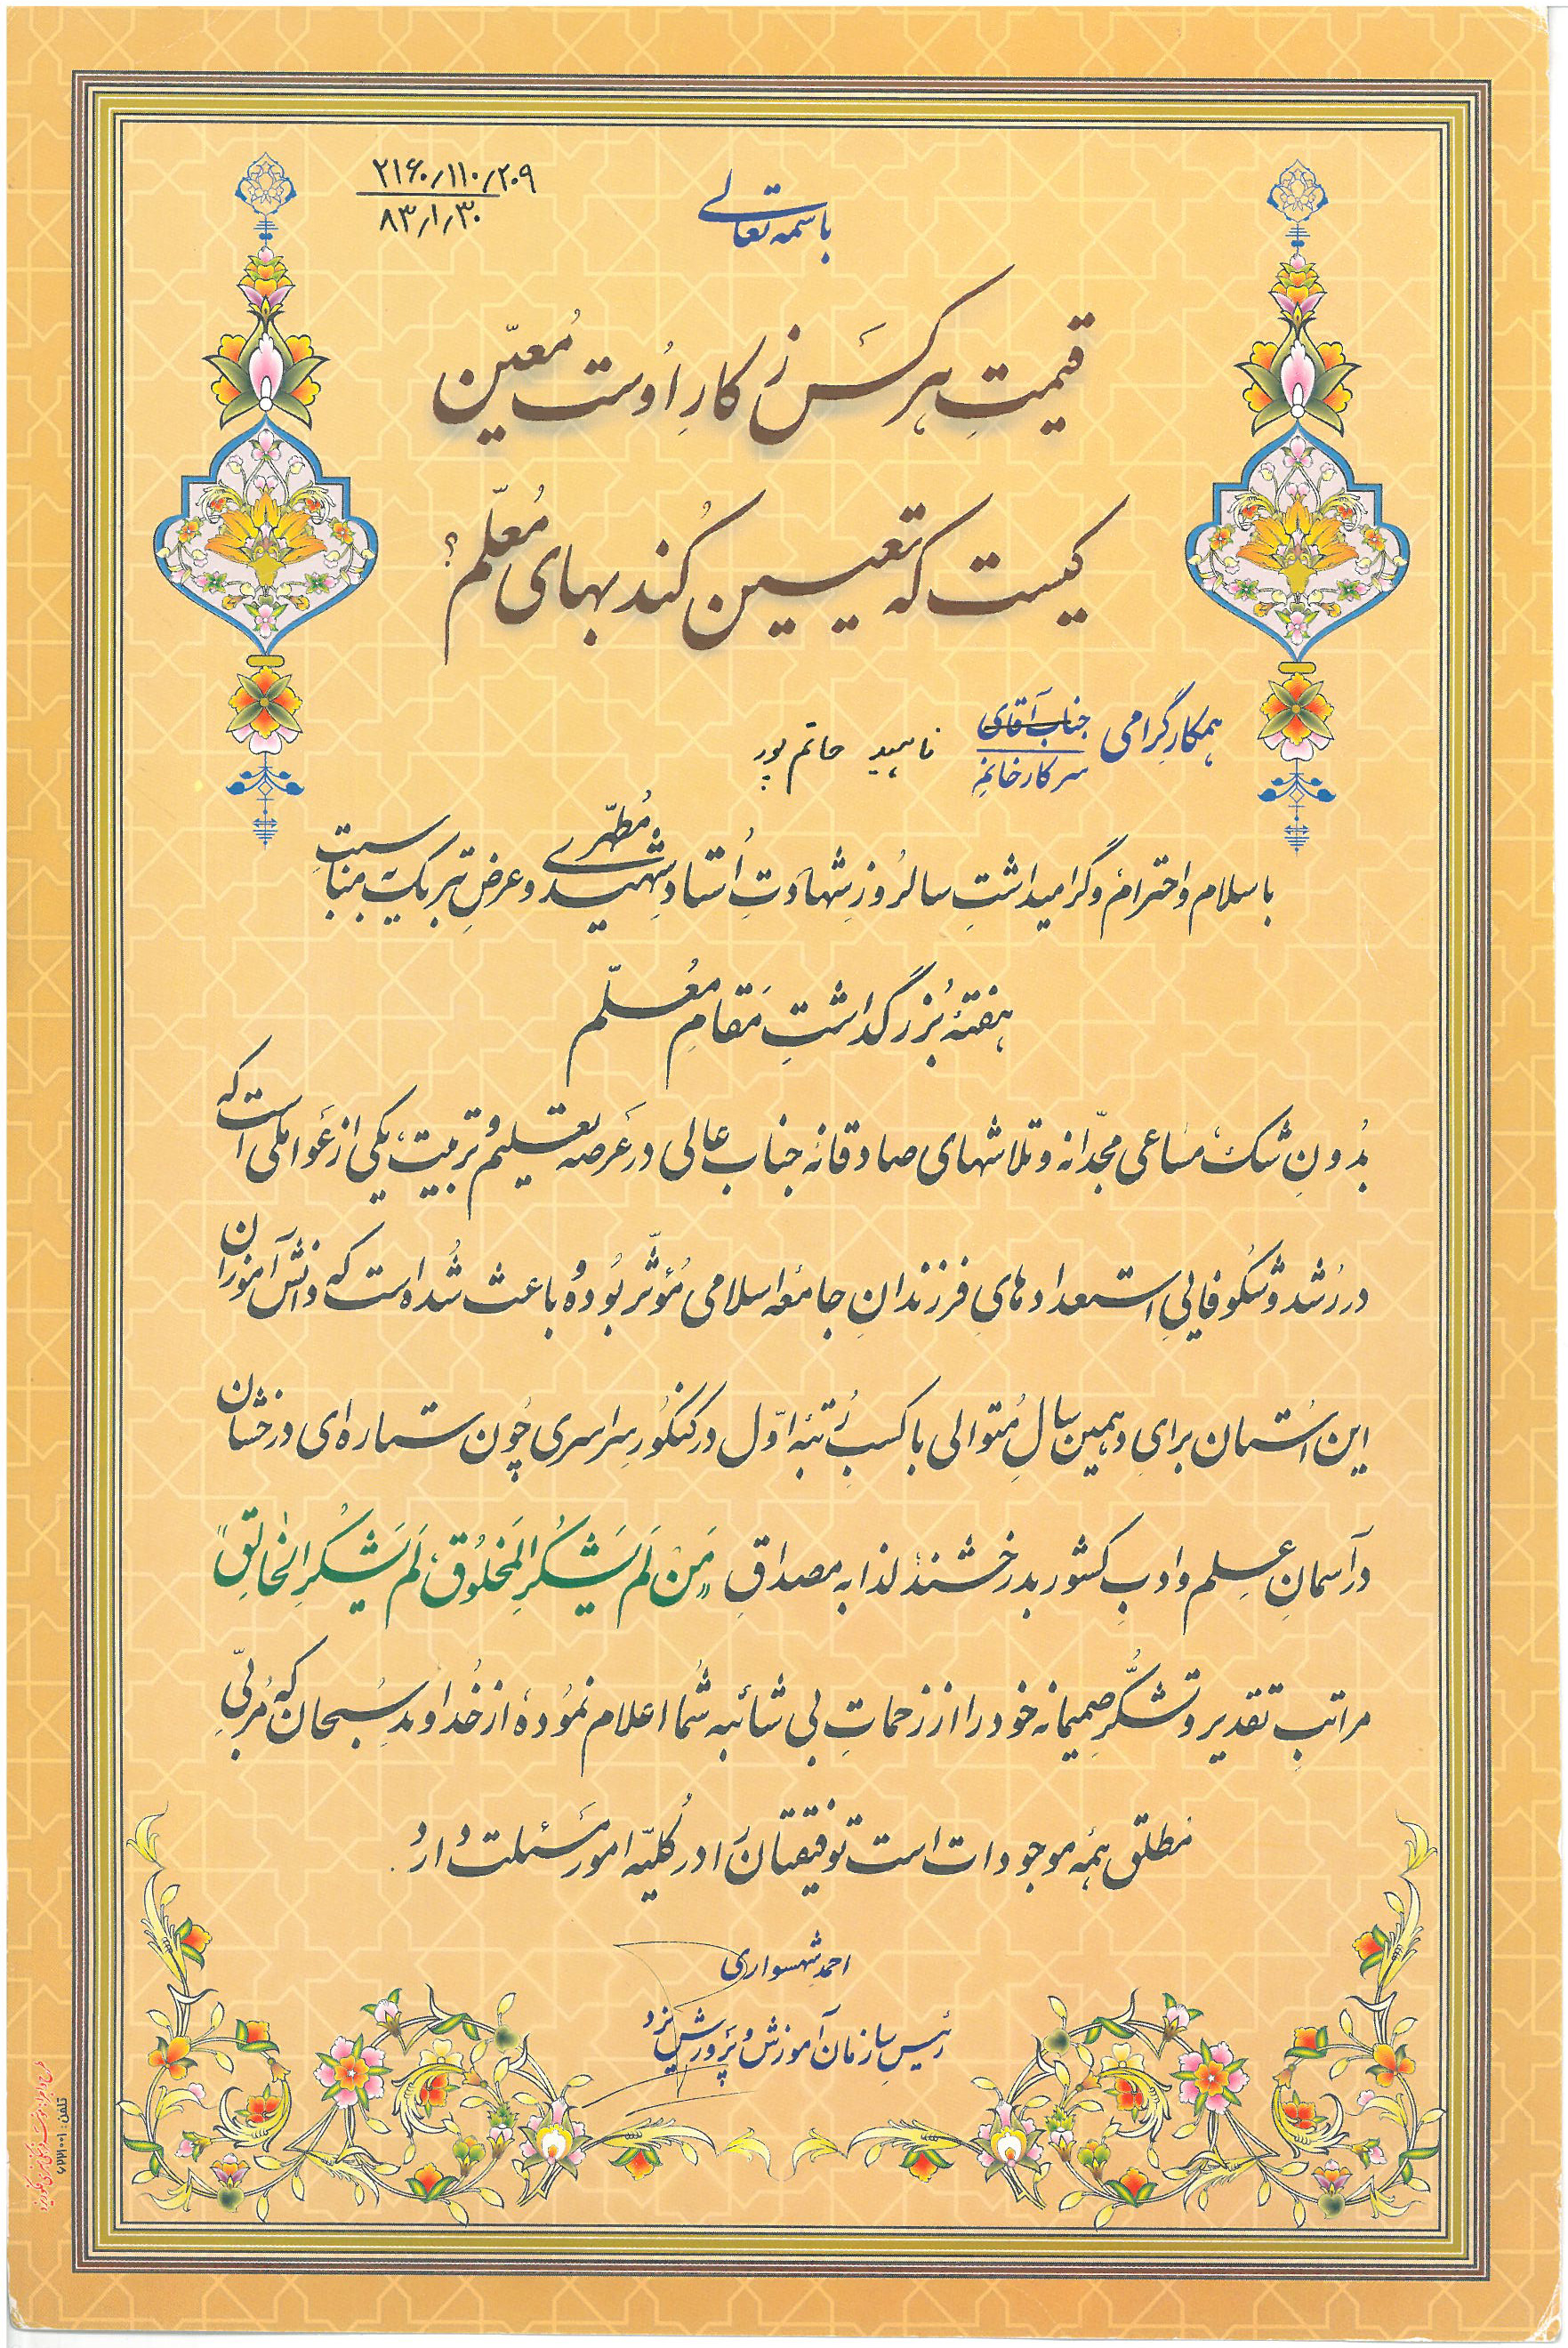 باسمه تعالی
۲۱۶۰/۱۱۰/۲۰۹
۸۳/۱/۳۰
قیمتِ هر کَس ز کارِ اُوست مُعیّن
کیست که تعیین کُند بهای مُعلّم؟
همکار گرامی جناب آقای
سرکار خانم ناهید حاتم پور
با سلام و احترام و گرامیداشتِ سالرُوزِ شهادتِ اُستاد شهید مُطهّری و عرضِ تبریک به مناسبتِ
هفتهٔ بُزرگداشتِ مَقامِ مُعلّم
بدُونِ شک، مساعی مجدّانه و تلاشهای صادقانهٔ جناب عالی در عَرصه تعلیم و تربیت، یکی از عَواملی است که
در رُشد و شکُوفایِیِ استعدادهایِ فرزندانِ جامعهٔ اسلامی مُؤثّر بُوده و باعث شُده است که دانش آموزان
این اُستان برایِ دهمین سالِ مُتوالی با کسبِ رُتبهٔ اوّل در کنکُورِ سراسری چُون ستاره‌ای درخشان
در آسمانِ علم و ادبِ کشور بدرخشند، لذا به مصداقِ «مَنْ لَم یَشکُرِ المَخلُوق، لَم یَشکُرِ الخالِق»
مراتبِ تقدیر و تشکُّرِ صمیمانه خود را از زحماتِ بی شائبه شُما اعلام نمُوده، از خُداوندِ سُبحان که مُربّیِ
مطلق همهٔ موجودات است توفیقتان را در کُلیّه امور مَسئلت دارد.
احمد شهسواری
رئیس سازمان آموزش و پرورش یزد
تلفن: ۶۲۲۱۰۰۱